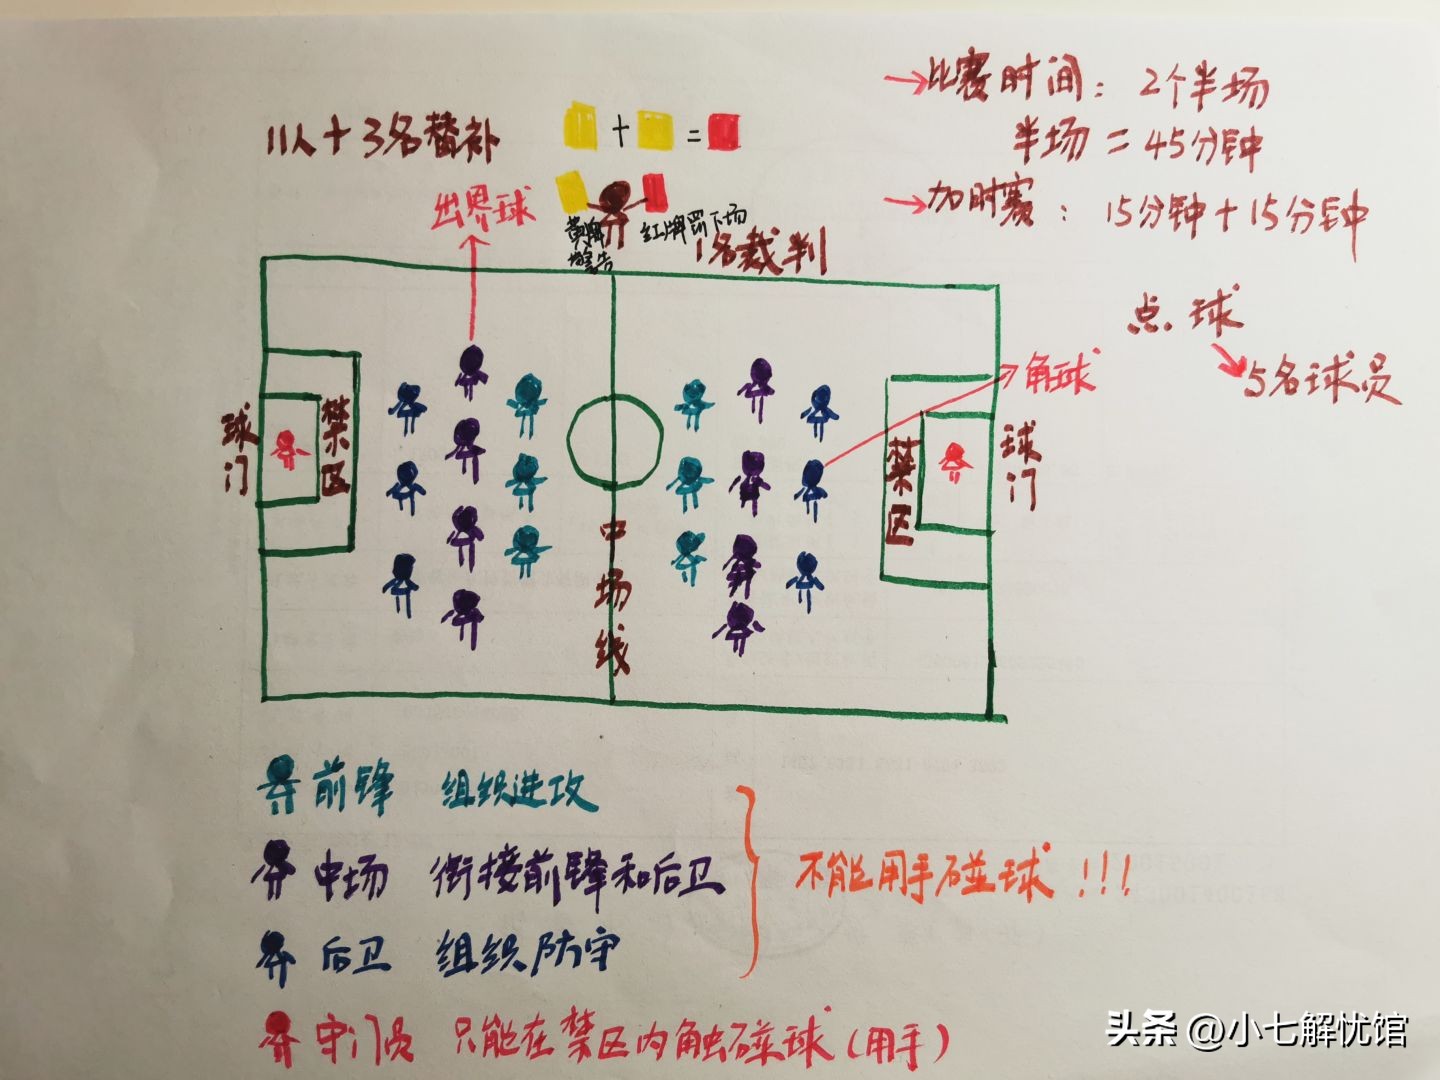 →比赛时间：2个半场
11人+3名替补
+ =
半场=45分钟
→加时赛：15分钟+15分钟
出界球
黄牌
警告
红牌罚下场
1名裁判
点球
5名球员
角球
球门
禁区
禁区
球门
中场线
前锋 组织进攻
中场 衔接前锋和后卫
不能用手碰球!!!
后卫 组织防守
守门员 只能在禁区内触碰球(用手)
头条@小七解忧馆